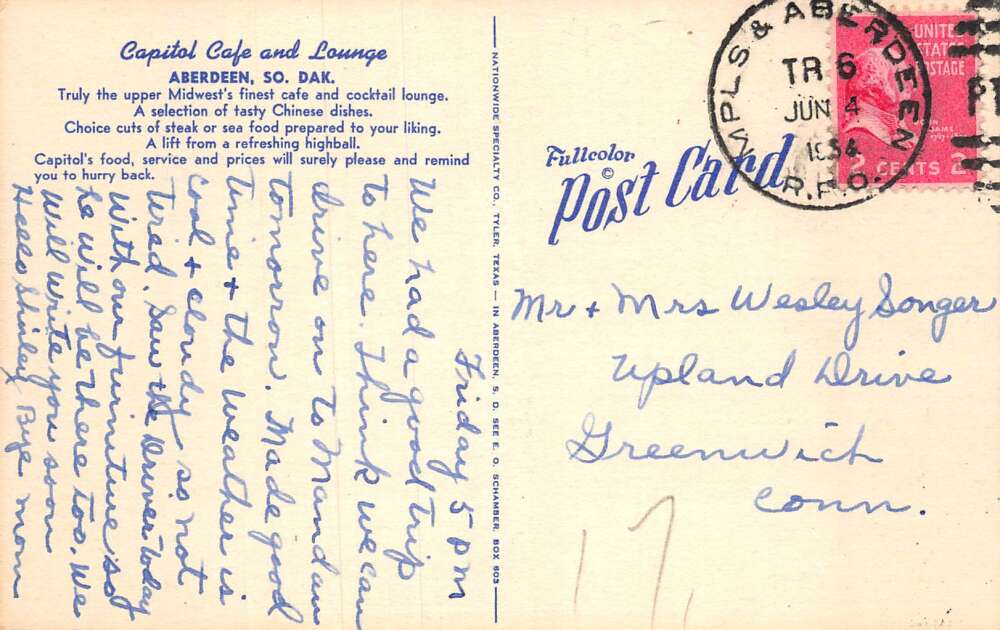 Capitol Cafe and Lounge
ABERDEEN, SO. DAK.
Truly the upper Midwest's finest cafe and cocktail lounge.
A selection of tasty Chinese dishes.
Choice cuts of steak or sea food prepared to your liking.
A lift from a refreshing highball.
Capitol's food, service and prices will surely please and remind
you to hurry back.
Friday 5 pm
We had a good trip
to here. Think we can
drive on to Mandan
tomorrow. Made good
time + the weather is
cool + cloudy so not
tired. Saw the Driver today
with our furniture so
he will be there too. We
will write you soon
Hello Shirley Bye mom
NATIONWIDE SPECIALTY CO., TYLER, TEXAS — IN ABERDEEN, S. D. SEE E. O. SCHAMBER, BOX 603 —
Fullcolor
©
Post Card
MPLS & ABERDEEN
TR 6
JUN 4
1954
R.P.O.
UNITED
STATES
POSTAGE
2 CENTS 2
Mr + Mrs Wesley Songer
Upland Drive
Greenwich
Conn.
17